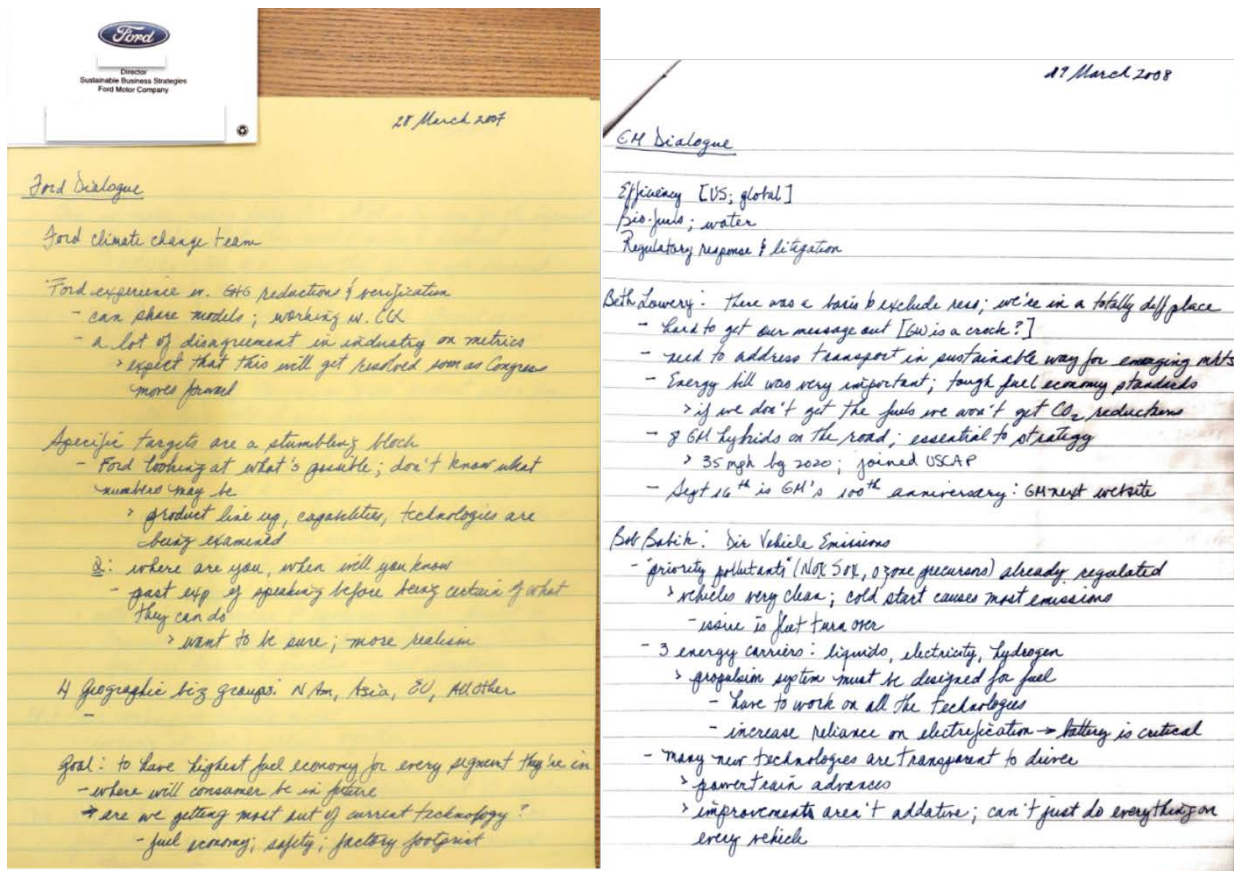 Ford
Director
Sustainable Business Strategies
Ford Motor Company
28 March 2007
Ford Dialogue
Ford climate change team
Ford experience w. GHG reductions & verification
- can share models; working w. CCX
- a lot of disagreement in industry on metrics
> expect that this will get resolved soon as Congress
moves forward
Specific targets are a stumbling block
- Ford looking at what's possible; don't know what
numbers may be
> product line up, capabilities, technologies are
being examined
Q: where are you, when will you know
- past exp of speaking before being certain of what
they can do
> want to be sure; more realism
4 Geographic biz groups: N Am, Asia, EU, All Other
-
Goal: to have highest fuel economy for every segment they're in
- where will consumer be in future
→ are we getting most out of current technology?
- fuel economy; safety; factory footprint
19 March 2008
GM Dialogue
Efficiency [US; global]
Bio-fuels; water
Regulatory response & litigation
Beth Lowery: there was a to exclude reso; we're in a totally diff place
- hard to get our message out [GW is a crock?]
- need to address transport in sustainable way for emerging mkts
- Energy bill was very important; tough fuel economy standards
> if we don't get the fuels we won't get CO₂ reductions
- 8 GM hybrids on the road; essential to strategy
> 35 mpg by 2020; joined USCAP
- Sept 16th is GM's 100th anniversary: GMnext website
Bob Babik: Dir Vehicle Emissions
- "priority pollutants" (NOx SOx, ozone precursors) already regulated
> vehicles very clean; cold start causes most emissions
- issue is fleet turn over
- 3 energy carriers: liquids, electricity, hydrogen
> propulsion system must be designed for fuel
- have to work on all the technologies
- increase reliance on electrification → battery is critical
- many new technologies are transparent to driver
> powertrain advances
> improvements aren't addative; can't just do everything on
every vehicle